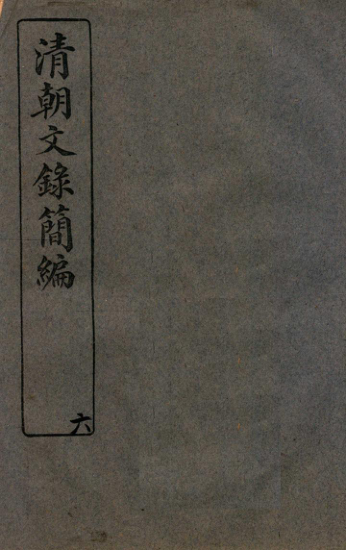 清朝文錄簡編
六